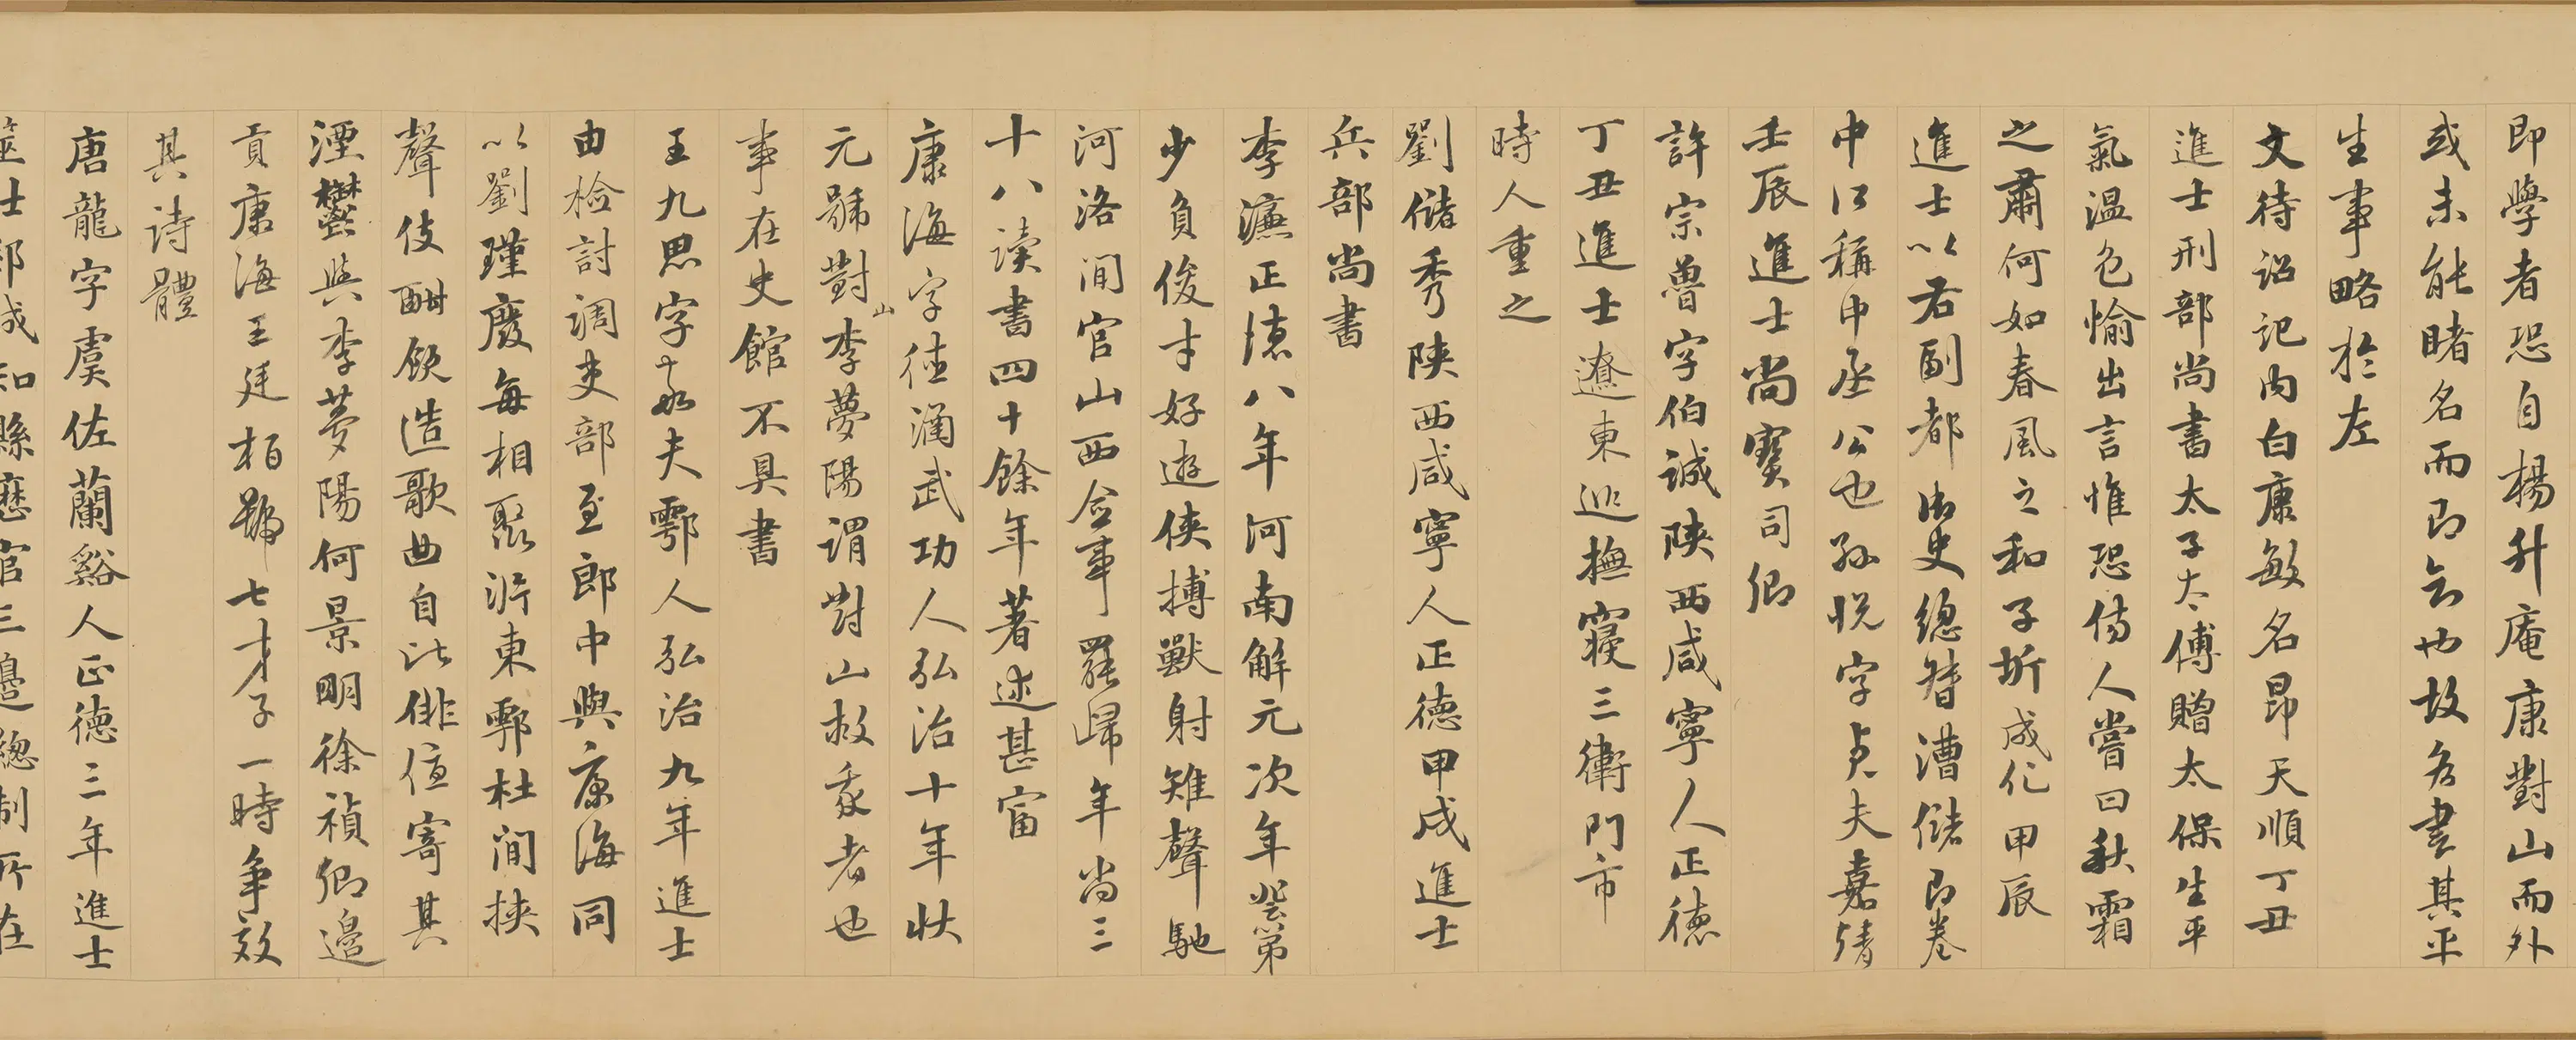 即學者恐自楊升庵康對山而外
或未能睹名而即知也故為書其平
生事略於左
文待詔記內白康敏名昂天順丁丑
進士刑部尚書太子太傅贈太保生平
氣溫色愉出言惟恐傷人嘗曰秋霜
之肅何如春風之和子圻成化甲辰
進士以右副都御史總督漕儲即卷
中所稱中丞公也孫悅字貞夫嘉靖
壬辰進士尚寶司卿
許宗魯字伯誠陝西咸寧人正德
丁丑進士遼東巡撫寢三衛門市
時人重之
劉儲秀陝西咸寧人正德甲戌進士
兵部尚書
李濂正德八年河南解元次年登第
少負俊才好遊俠搏獸射雉聲馳
河洛間官山西僉事罷歸年尚三
十八讀書四十餘年著述甚富
康海字德涵武功人弘治十年狀
元號對山李夢陽謂對山救我者也
事在史館不具書
王九思字敬夫鄠人弘治九年進士
由檢討調吏部至郎中與康海同
以劉瑾廢每相聚沜東鄠杜間挾
聲伎酣飲造歌曲自比俳優寄其
湮鬱與李夢陽何景明徐禎卿邊
貢康海王廷相號七才子一時爭效
其詩體
唐龍字虞佐蘭谿人正德三年進士
筮士郯城知縣歷官三邊總制所在